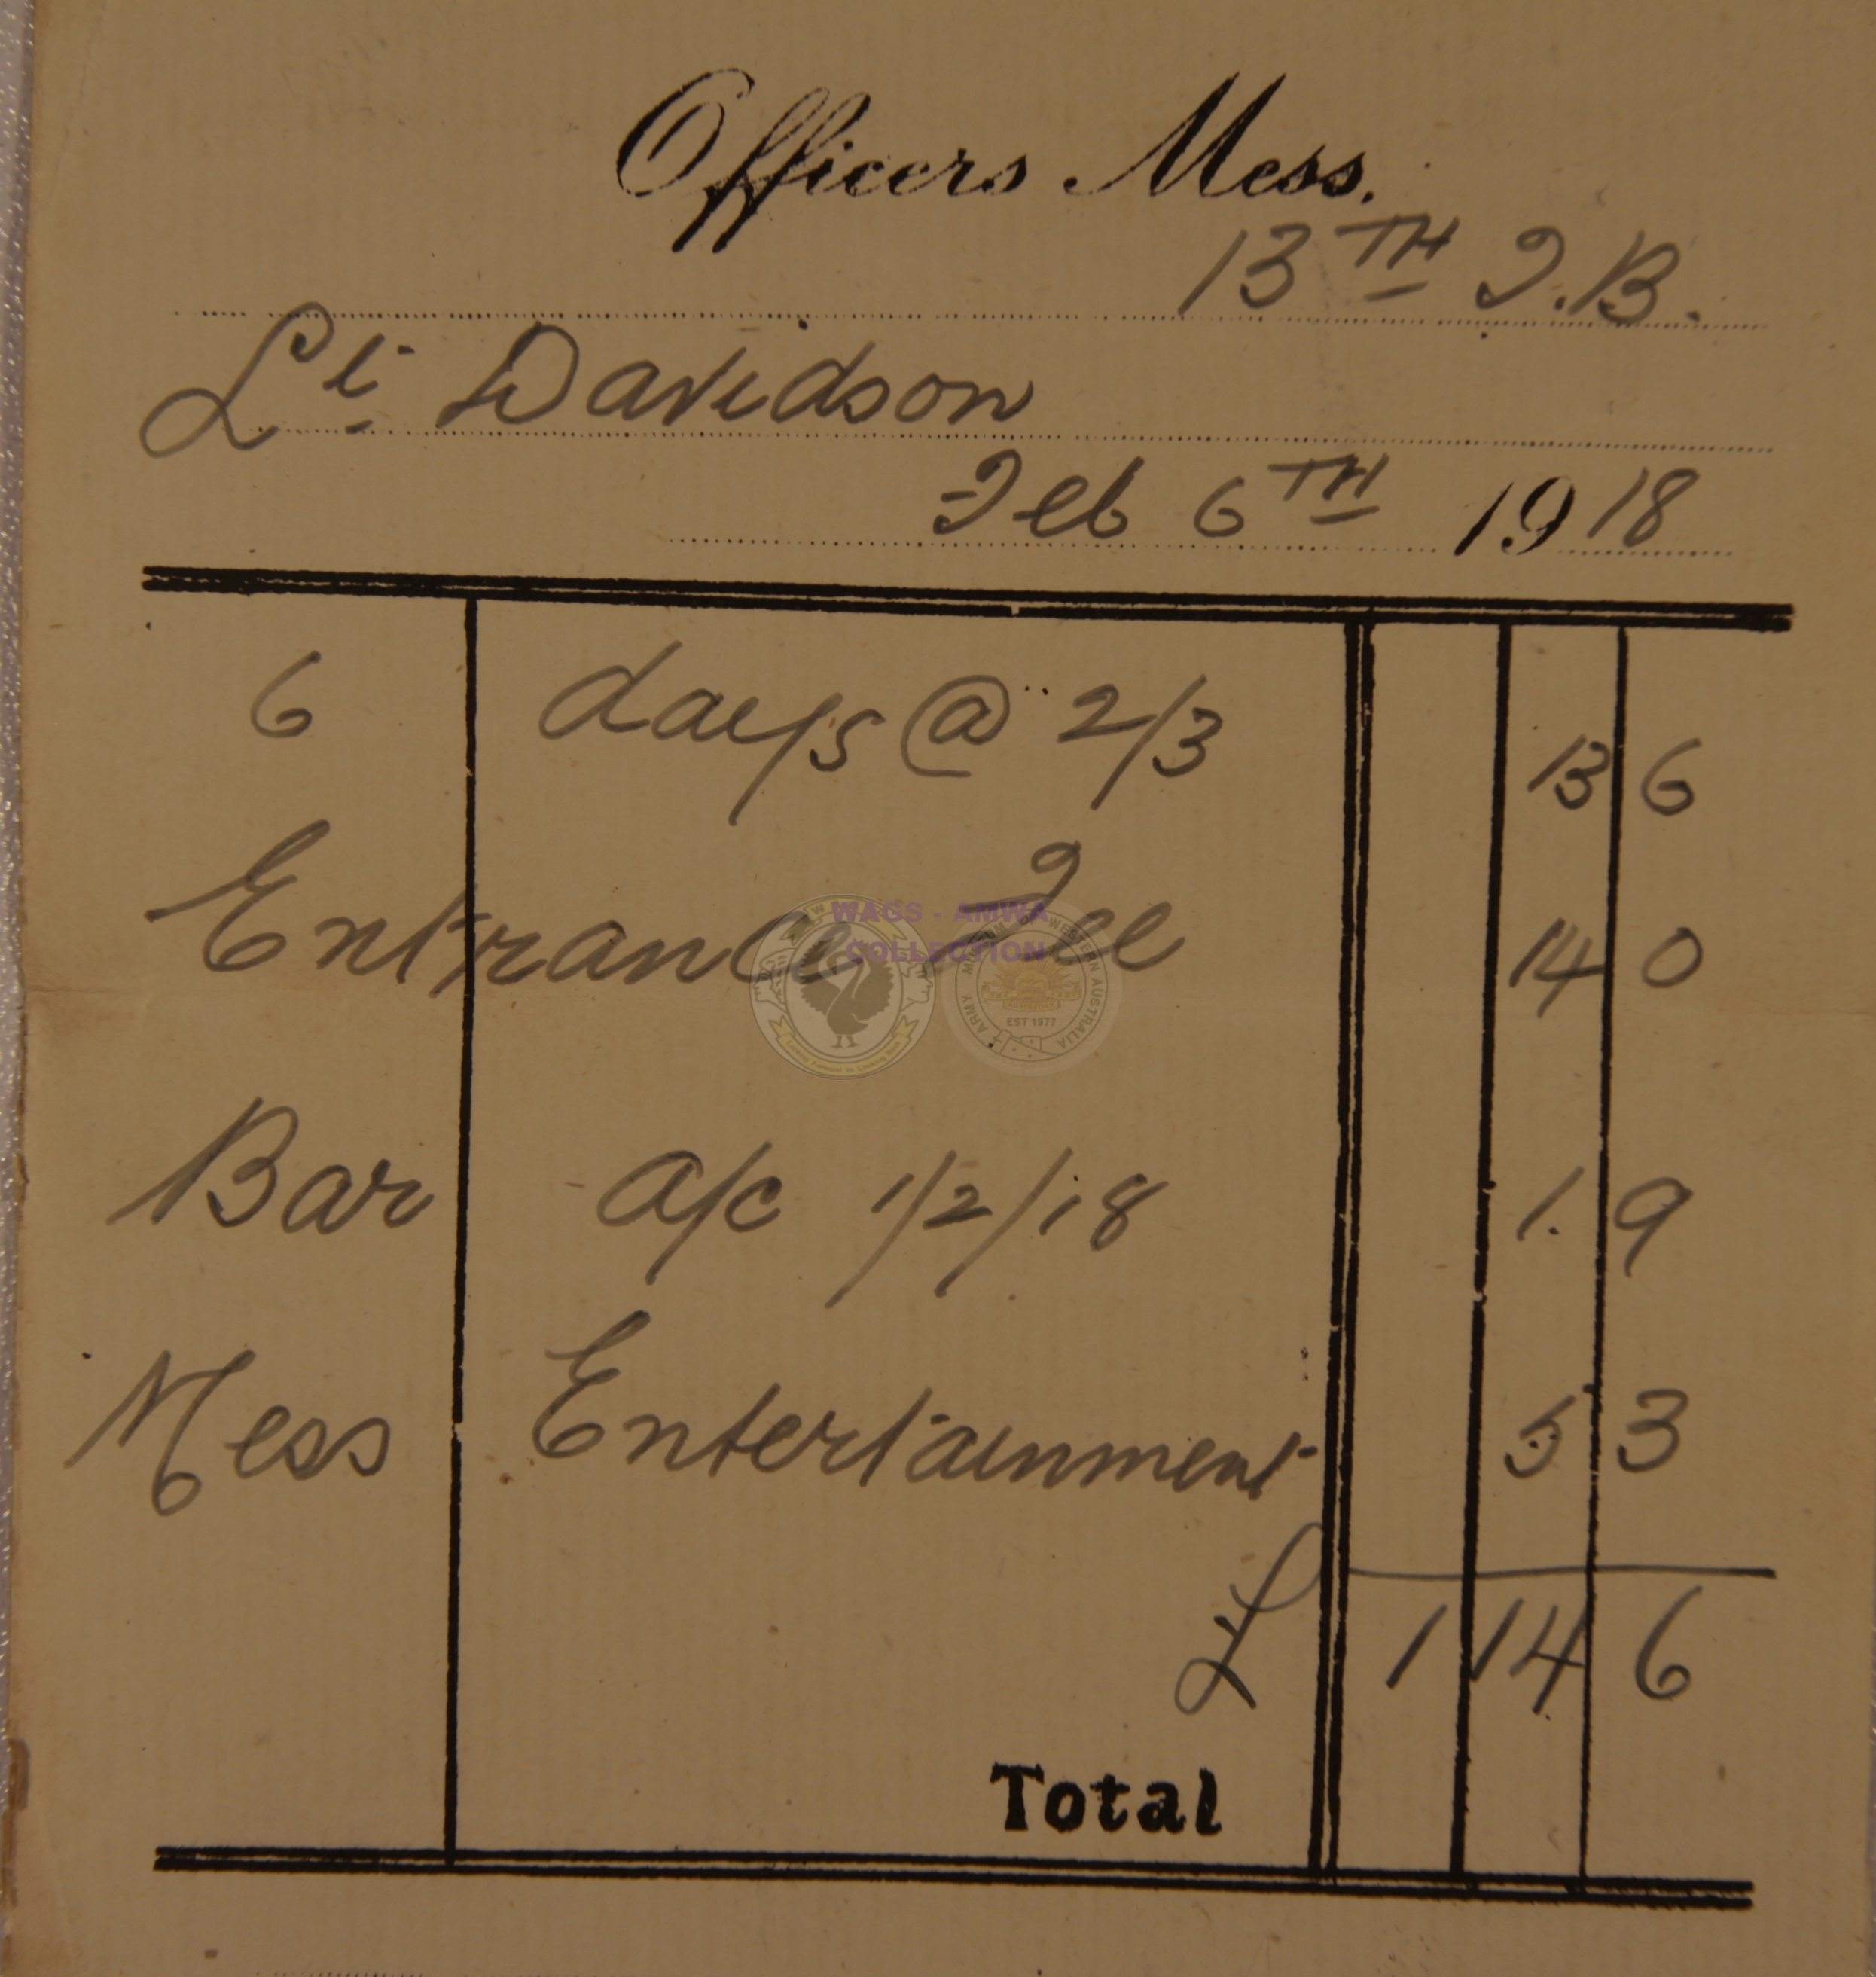 Officers Mess.
13TH T.B.
Lt Davidson
Feb 6TH 1918
6 days @ 2/3 13 6
Entrance Fee 14 0
WAGS - AMWA
COLLECTION
EST 1977
Bar a/c 1/2/18 1. 9
Mess Entertainment 5 3
£ 1 14 6
Total